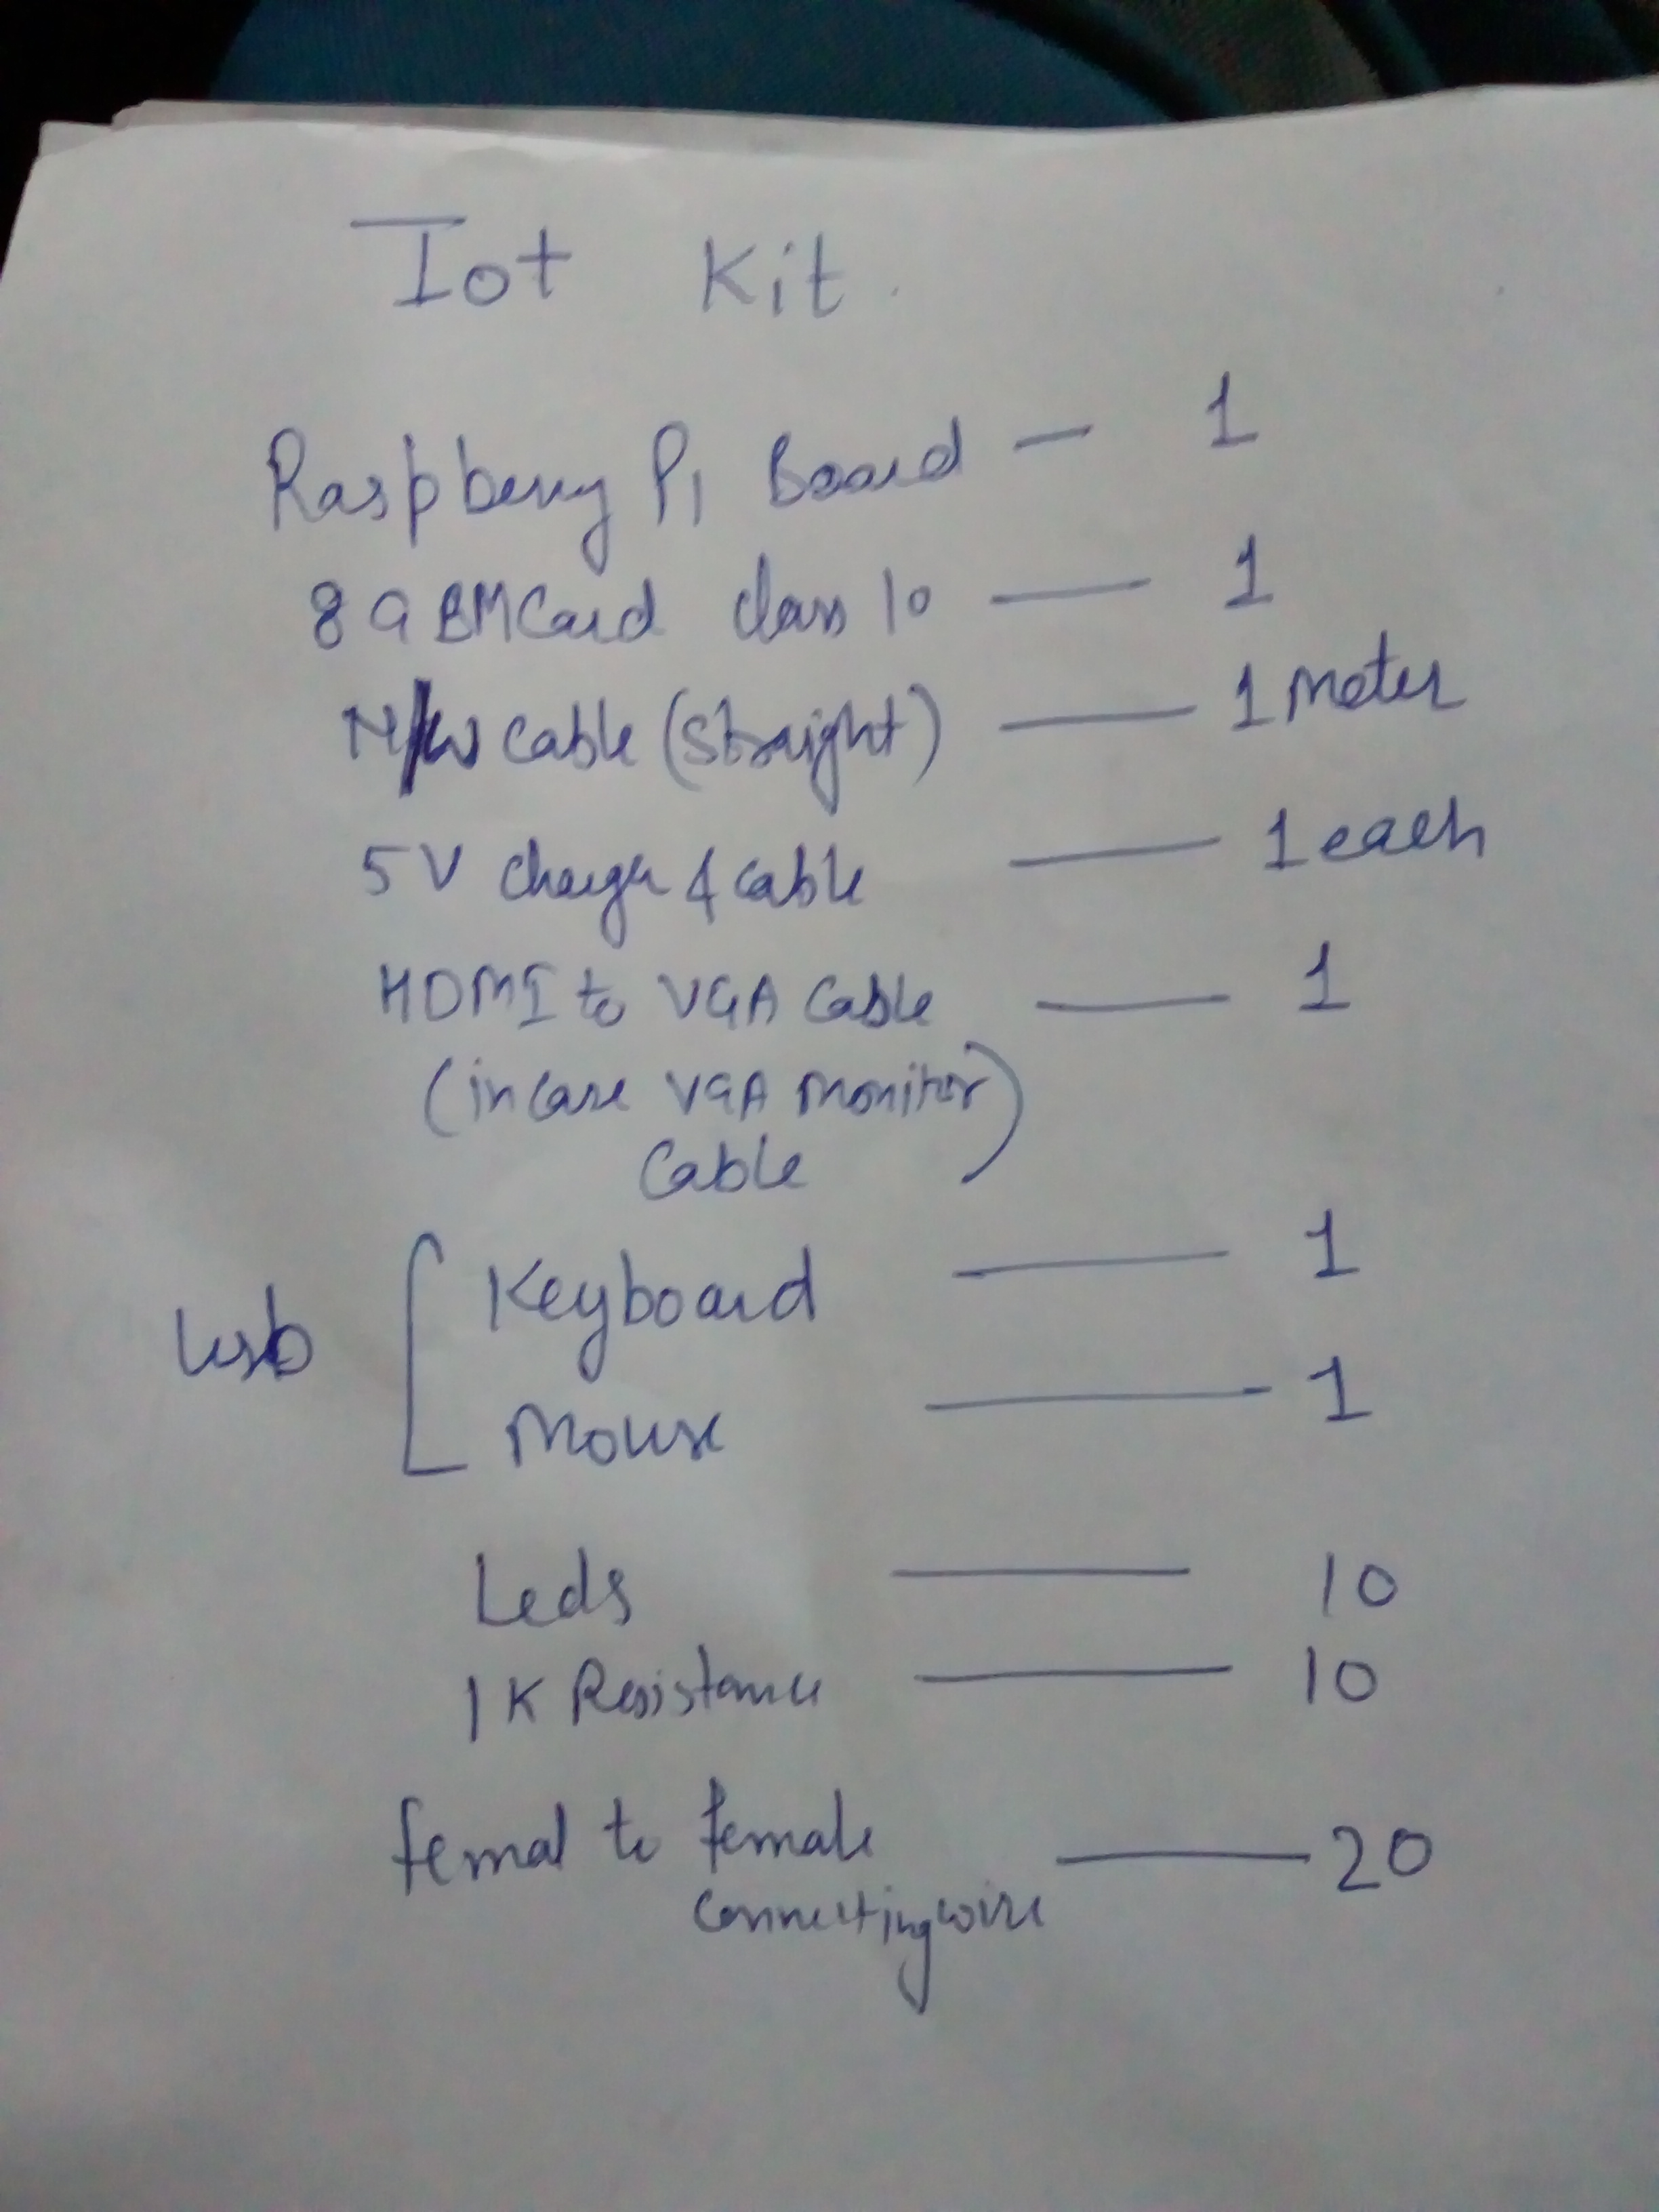 Iot Kit.
Raspberry Pi Board — 1
8 GB MCard Class 10 — 1
N/W Cable (Straight) — 1 Meter
5V Charger & Cable — 1 each
HDMI to VGA Cable — 1
(incase VGA Monitor
Cable)
Usb [ Keyboard — 1
Mouse — 1
Leds — 10
1K Resistance — 10
femal to female — 20
connecting wire